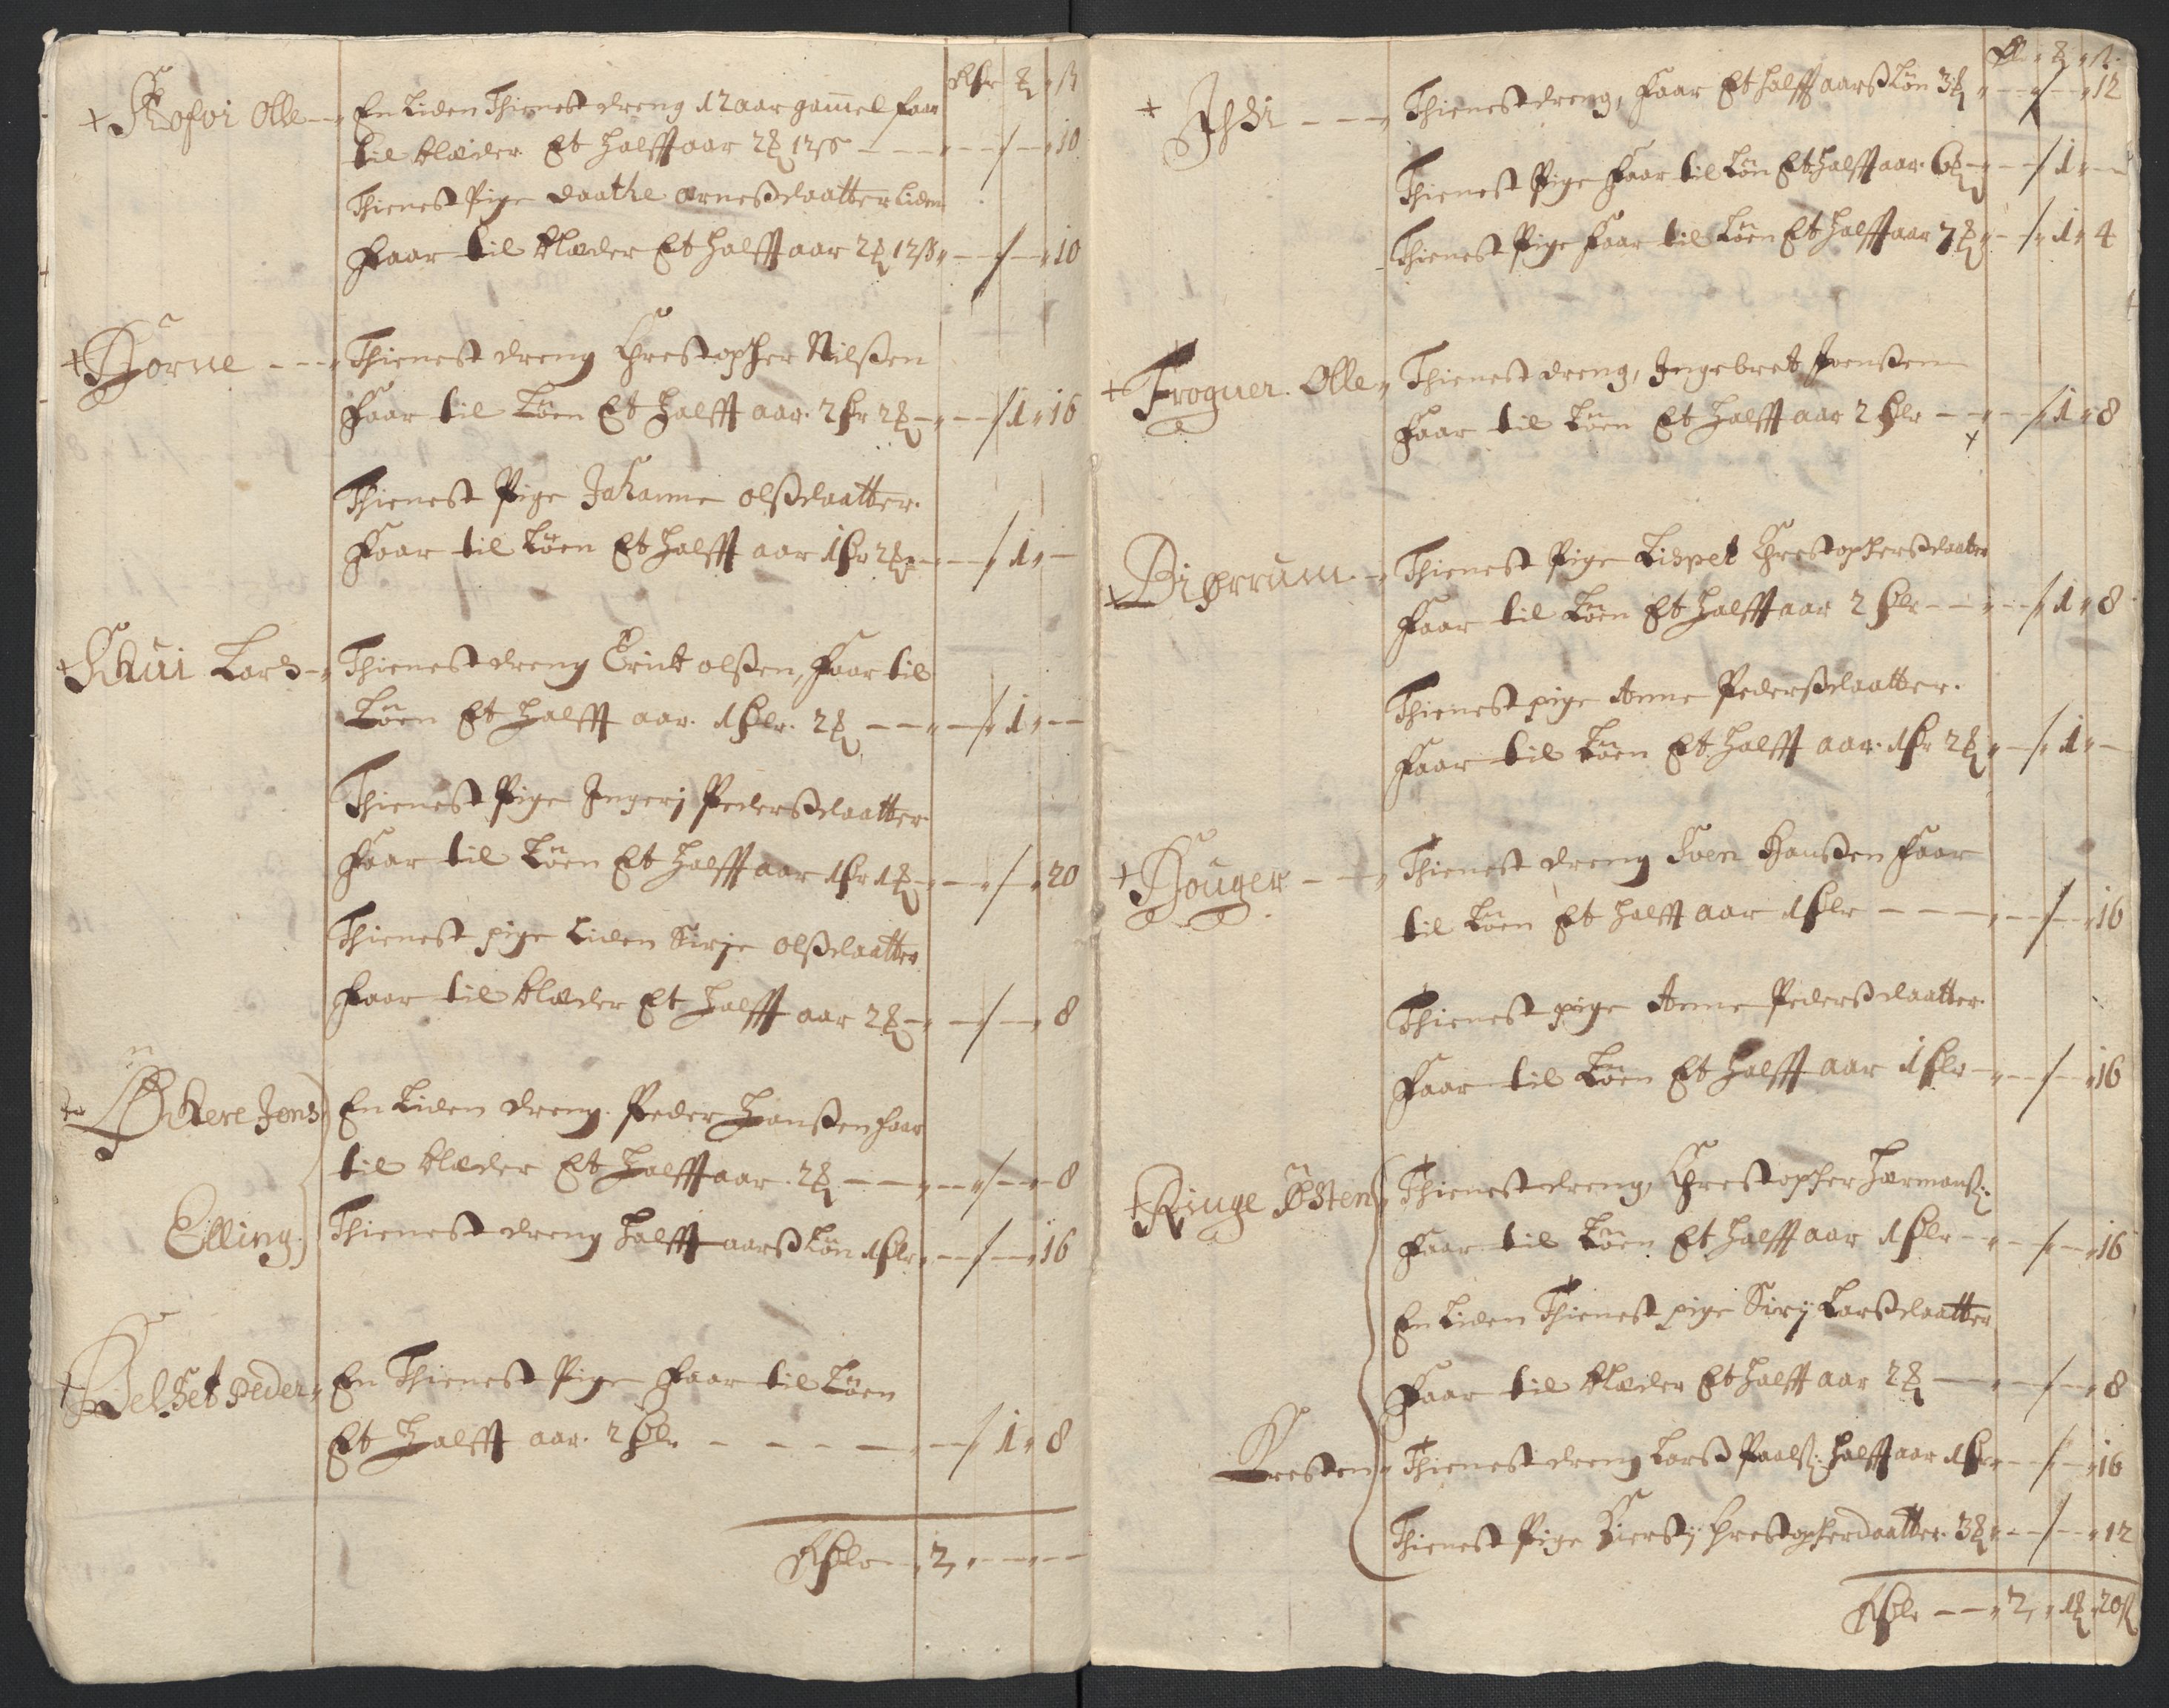 Rdr ꝥ ß
+ Skofvi Olle — En Liden Thienest dreng 12 aar gammel faar
til klæder Et halff aar 2 ꝥ 12 ß — — / — 10
Thienest Pige daathe arneßdaatter Liden
Faar til klæder Et halff aar 2 ꝥ 12 ß — / — 10
+ Horne — — Thienest dreng Chrestopher Nilßen
Faar til Löen Et halff aar. 2 dr 2 ꝥ — / 1 „ 16
Thienest Pige Johanne olßdaatter.
Faar til Löen Et halff aar 1 dr 2 ꝥ — / 1 „ —
+ Skui Lars — Thienest dreng Erick olßen, Faar til
Löen Et halff aar. 1 dlr. 2 ꝥ — — / 1 „ —
Thienest Pige Ingerj Pederßdaatter
Faar til Löen Et halff aar 1 dr 1 ꝥ — / — 20
Thienest pige Liden Sirje olßdaatter
Faar til klæder Et halff aar 2 ꝥ — / — 8
Ökere Jens) En Liden dreng. Peder Hanßen faar
til klæder Et halff aar. 2 ꝥ — — / — 8
Elling) Thienest dreng halff aarß Lön 1 dlr — / — 16
+ Belset Peder „ En Thienest Pige Faar til Löen
Et halff aar. 2 dlr — — — — / 1 „ 8
Rdlr — 2 „ — —
ꝥ ß
+ Jhdi — — Thienest dreng, Faar Et halff aarß Lön 3 ꝥ — / — 12
Thienest Pige Faar til Lön Et halff aar. 6 ꝥ — / 1 „ —
Thienest Pige Faar til Löen Et halff aar 7 ꝥ — / 1 „ 4
+ Frogner. Olle „ Thienest dreng, Ingebret Joenßen
Faar til Löen Et halff aar 2 dlr — — / 1 „ 8
+ Biørrum. — Thienest Pige Lispet Chrestopherßdaatter
Faar til Löen Et halff aar 2 dlr — — / 1 „ 8
Thienest pige Anne Pederßdaatter.
Faar til Löen Et halff aar. 1 dr 2 ꝥ — / 1 „ —
+ Houger — — Thienest dreng Soen Hanßen Faar
til Löen Et halff aar 1 dlr — — — / — 16
Thienest pige Anne Pederßdaatter.
Faar til Löen Et halff aar 1 dlr — / — 16
+ Ringe Østen Thienest dreng, Chrestopher Hermanß:
Faar til Löen Et halff aar 1 dlr — / — 16
En Liden Thienest pige Sirj Larßdaatter
Faar til klæder Et halff aar 2 ꝥ — — / — 8
Kresten „ Thienest dreng Larß Paalß: halff aar 1 dr — / — 16
Thienest Pige Kierstj Chrestopherdaatter. 3 ꝥ — / — 12
Rdlr — — 2 „ 1 ꝥ 20 ß